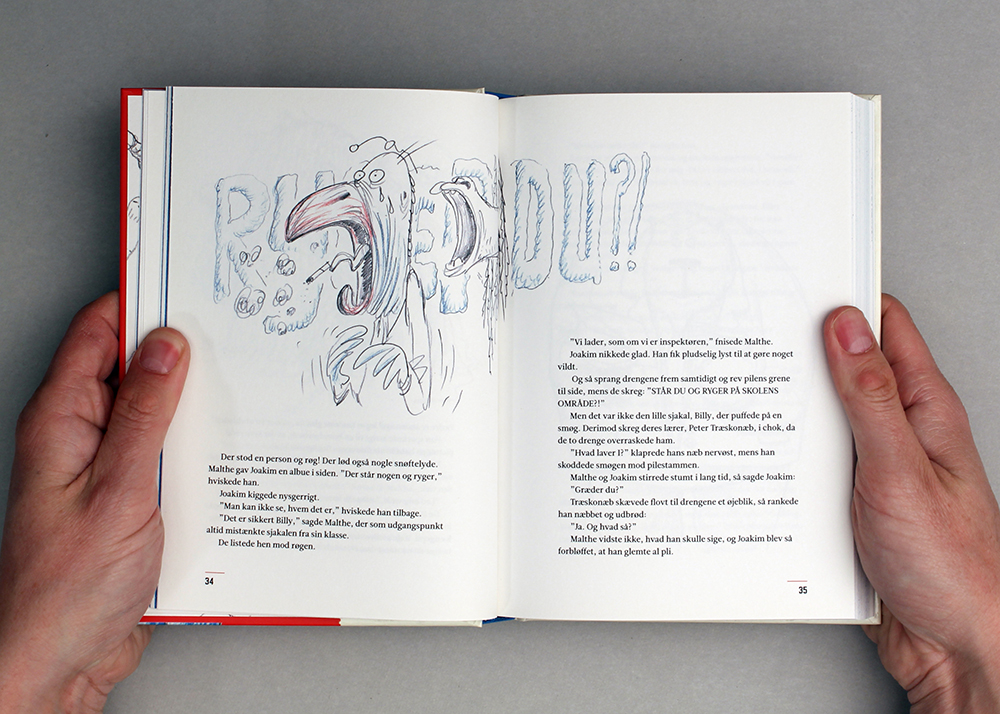 RYGER DU?!
Der stod en person og røg! Der lød også nogle snøftelyde.
Malthe gav Joakim en albue i siden. ”Der står nogen og ryger,”
hviskede han.
Joakim kiggede nysgerrigt.
”Man kan ikke se, hvem det er,” hviskede han tilbage.
”Det er sikkert Billy,” sagde Malthe, der som udgangspunkt
altid mistænkte sjakalen fra sin klasse.
De listede hen mod røgen.
34
”Vi lader, som om vi er inspektøren,” fnisede Malthe.
Joakim nikkede glad. Han fik pludselig lyst til at gøre noget
vildt.
Og så sprang drengene frem samtidigt og rev pilens grene
til side, mens de skreg: ”STÅR DU OG RYGER PÅ SKOLENS
OMRÅDE?!”
Men det var ikke den lille sjakal, Billy, der puffede på en
smøg. Derimod skreg deres lærer, Peter Træskonæb, i chok, da
de to drenge overraskede ham.
”Hvad laver I?” klaprede hans næb nervøst, mens han
skoddede smøgen mod pilestammen.
Malthe og Joakim stirrede stumt i lang tid, så sagde Joakim:
”Græder du?”
Træskonæb skævede flovt til drengene et øjeblik, så rankede
han næbbet og udbrød:
”Ja. Og hvad så?”
Malthe vidste ikke, hvad han skulle sige, og Joakim blev så
forbløffet, at han glemte al pli.
35